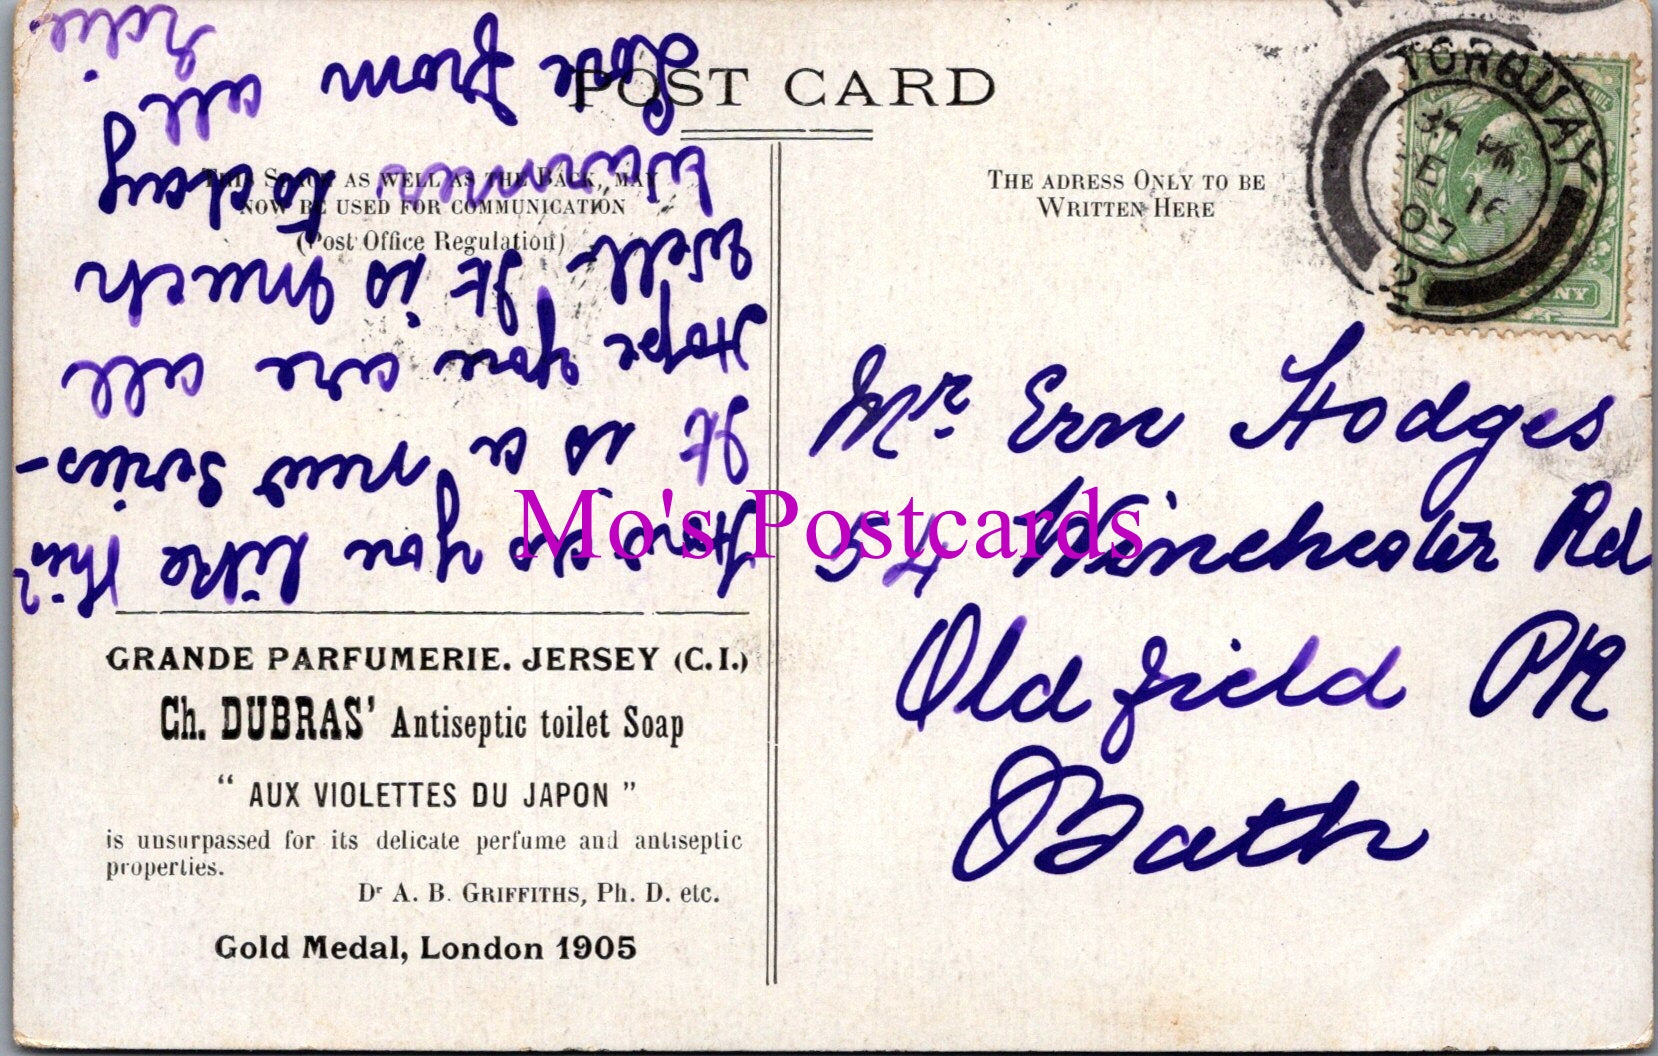 POST CARD
THIS SPACE AS WELL AS THE BACK, MAY
NOW BE USED FOR COMMUNICATION
(Post Office Regulation)
THE ADRESS ONLY TO BE
WRITTEN HERE
TORQUAY
16
07
2
How do you like this?
It is a new series-
Hope you are all
well It is much
warmer today
Love from all
Mr. Ern Hodges
54 Winchester Rd
Oldfield PK
Bath
Mo's Postcards
GRANDE PARFUMERIE. JERSEY (C.I.)
Ch. DUBRAS' Antiseptic toilet Soap
“ AUX VIOLETTES DU JAPON ”
is unsurpassed for its delicate perfume and antiseptic
properties.
Dr A. B. GRIFFITHS, Ph. D. etc.
Gold Medal, London 1905